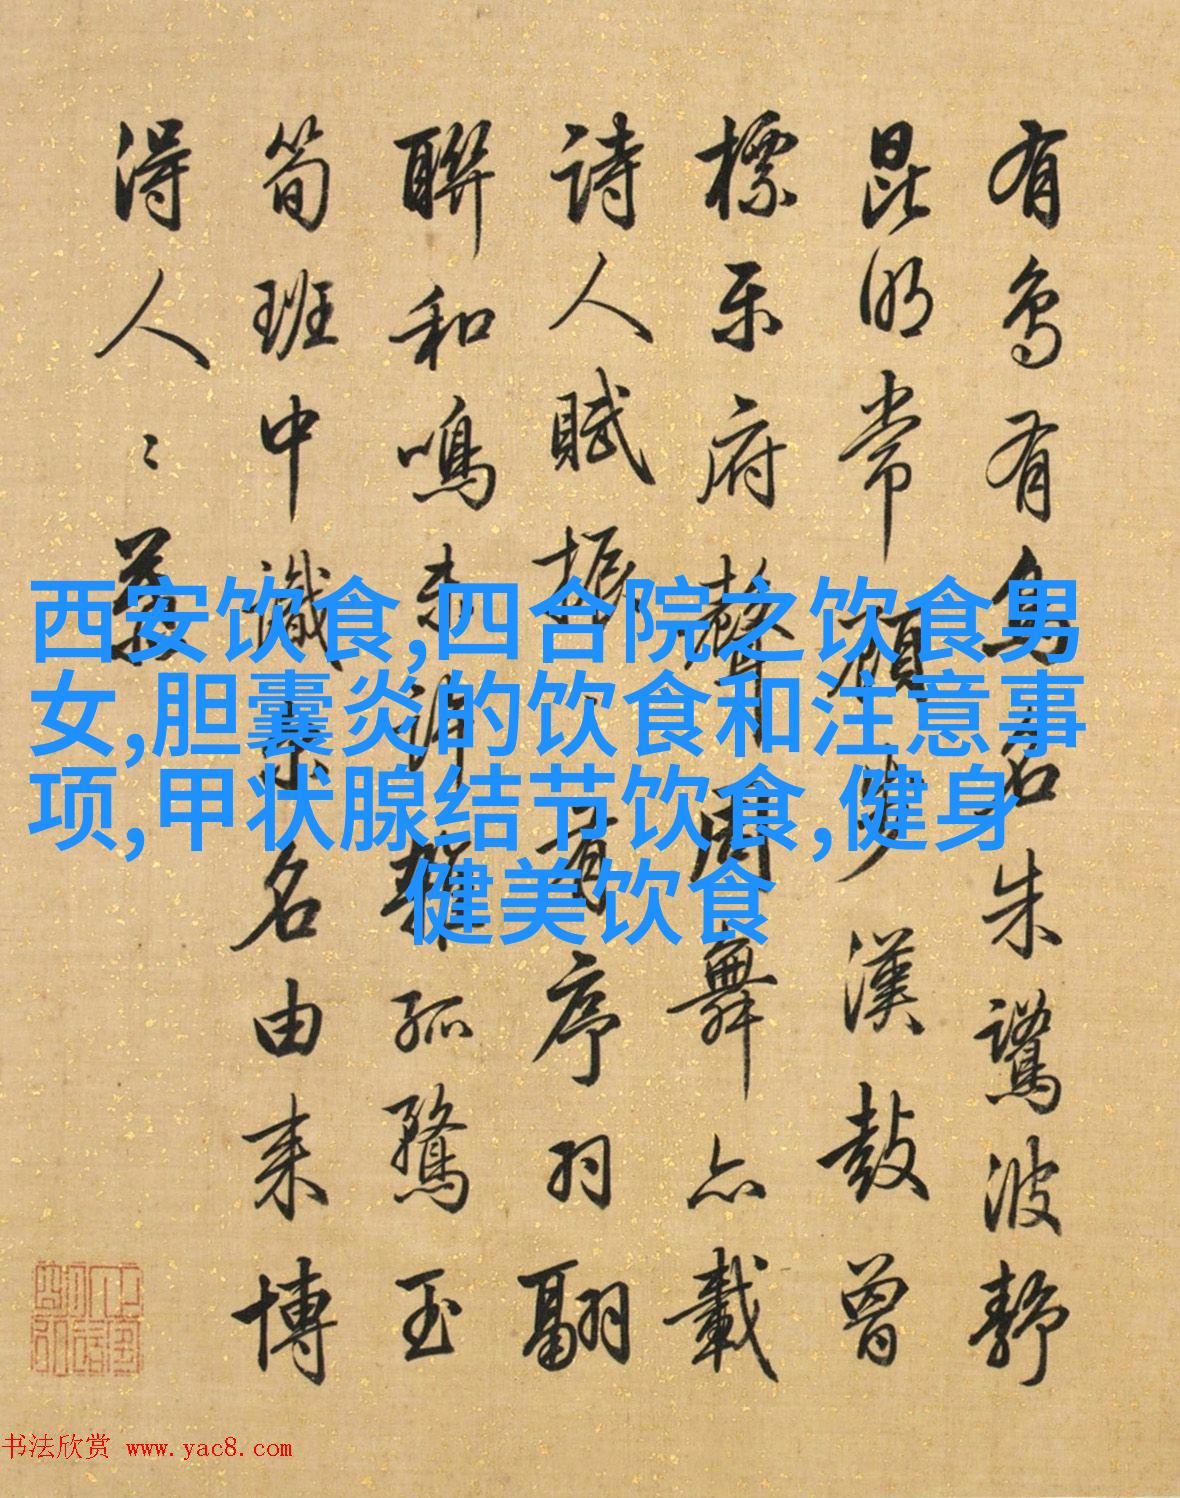 有鳥有鳥名朱鷺波静
昆明常顧步漢鼓曾
標乐府聲聞舞亦載
詩人賦振有序羽翮
聯和鳴未許雜孤鶩玉
筍班中識名由来博
得人
西安饮食,四合院之饮食男
女,胆囊炎的饮食和注意事
项,甲状腺结节饮食,健身
健美饮食
书法欣赏 www.yac8.com